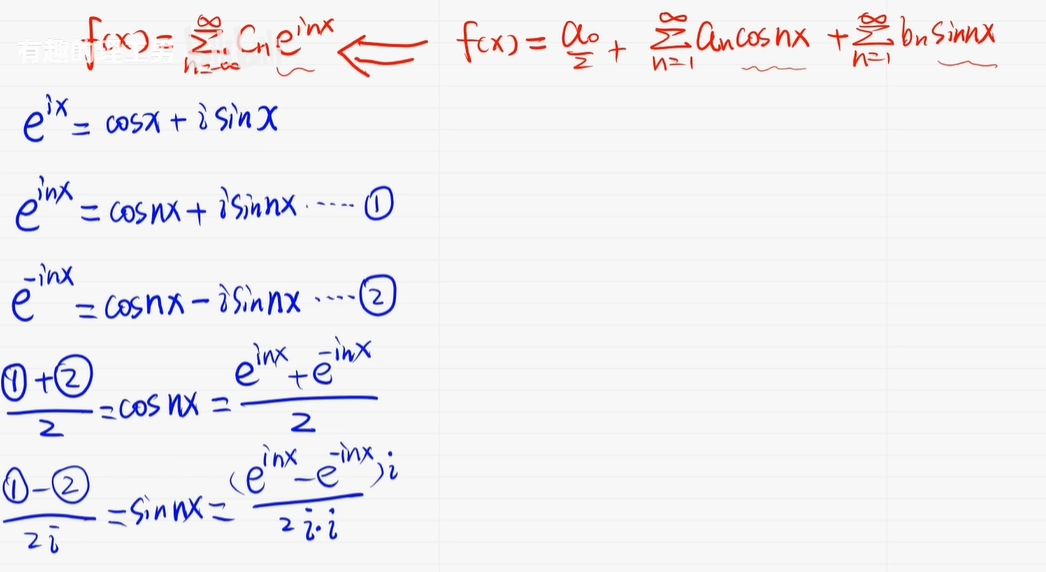 f(x) = ∑_{n=-∞}^{∞} Cₙ e^{inx} ⟸ f(x) = a₀/2 + ∑_{n=1}^{∞} aₙ cos nx + ∑_{n=1}^{∞} bₙ sin nx
有趣的理工男
e^{ix} = cosx + i sin x
e^{inx} = cos nx + i sin nx ····· ①
e^{-inx} = cos nx - i sin nx ····· ②
(①+②)/2 = cos nx = (e^{inx} + e^{-inx})/2
(①-②)/2i = sin nx = (e^{inx} - e^{-inx})i / 2i·i